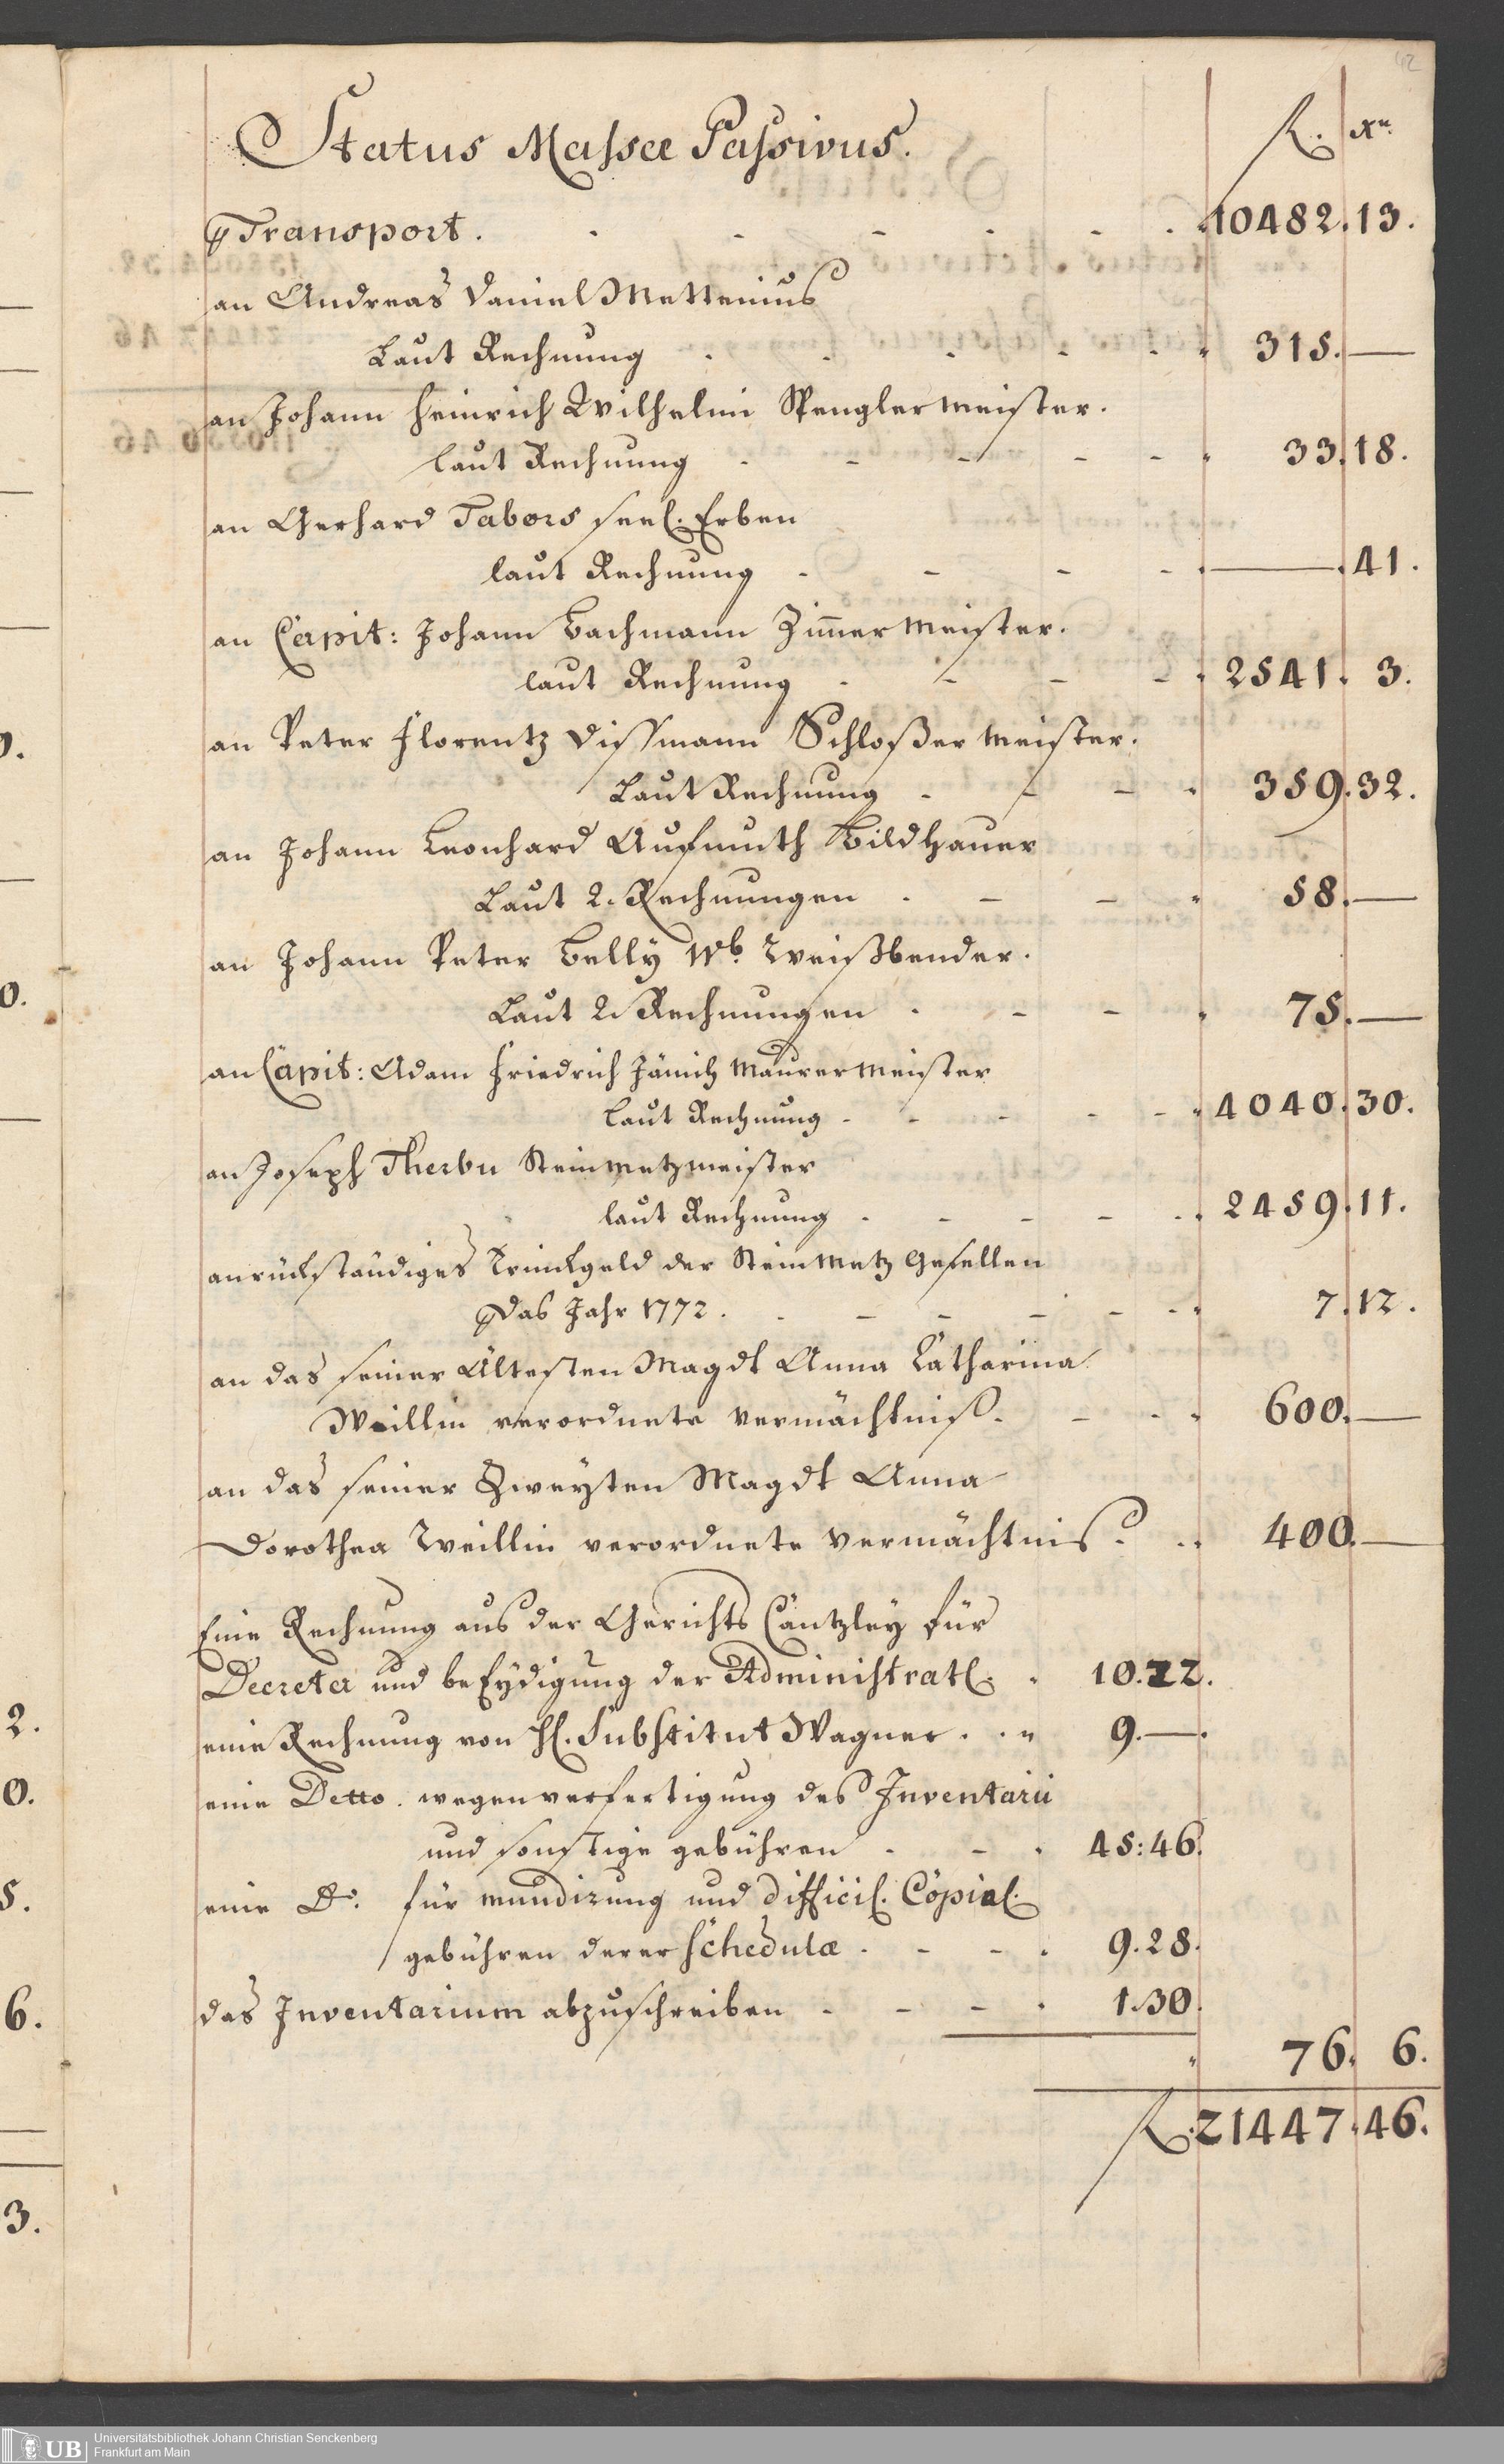 42
Status Massæ Passivus.
fl. Xr.
Transport. 10482. 13.
an Andreas Daniel Mettenius
Laut Rechnung 315. —
an Johann Heinrich Wilhelmi Spenglermeister.
laut Rechnung 33. 18.
an Gerhard Tabors seel. Erben
laut Rechnung — . 41.
an Capit: Johann Bachmann Zim̄er Meister.
laut Rechnung 2541. 3.
an Peter Florentz Dissmann Schloßer Meister.
Laut Rechnung 359. 32.
an Johann Leonhard Aufmuth Bildhauer
Laut 2. Rechnungen 58. —
an Johann Peter Belly Wb. Weißbender.
Laut 2. Rechnungen 75. —
an Capit: Adam Friedrich Jänich Maurermeister
laut Rechnung 4040. 30.
an Joseph Therbu Steinmetzmeister
laut Rechnung 2459. 11.
an rückständiges Trinckgeld der Steinmetz Gesellen
das Jahr 1772. 7. 12.
an das seiner Ältesten Magdt Anna Catharina
Weillin verordnete Vermächtniß. 600. —
an das seiner Zweyten Magdt Anna
Dorothea Weillin verordnete Vermächtnis. 400. —
Eine Rechnung aus der Gerichts Cantzley für
Decreta und beEydigung der Administrat. 10. 22.
eine Rechnung von H. Substitut Wagner. 9. —.
eine Detto. wegen verfertigung des Inventarii
und sonstige gebühren 45: 46.
eine Do. für mundirung und difficil. Copial.
gebühren derer Schedulæ. 9. 28.
das Inventarium abzuschreiben 1. 30.
76. 6.
fl. 21447. 46.
UB
Universitätsbibliothek Johann Christian Senckenberg
Frankfurt am Main